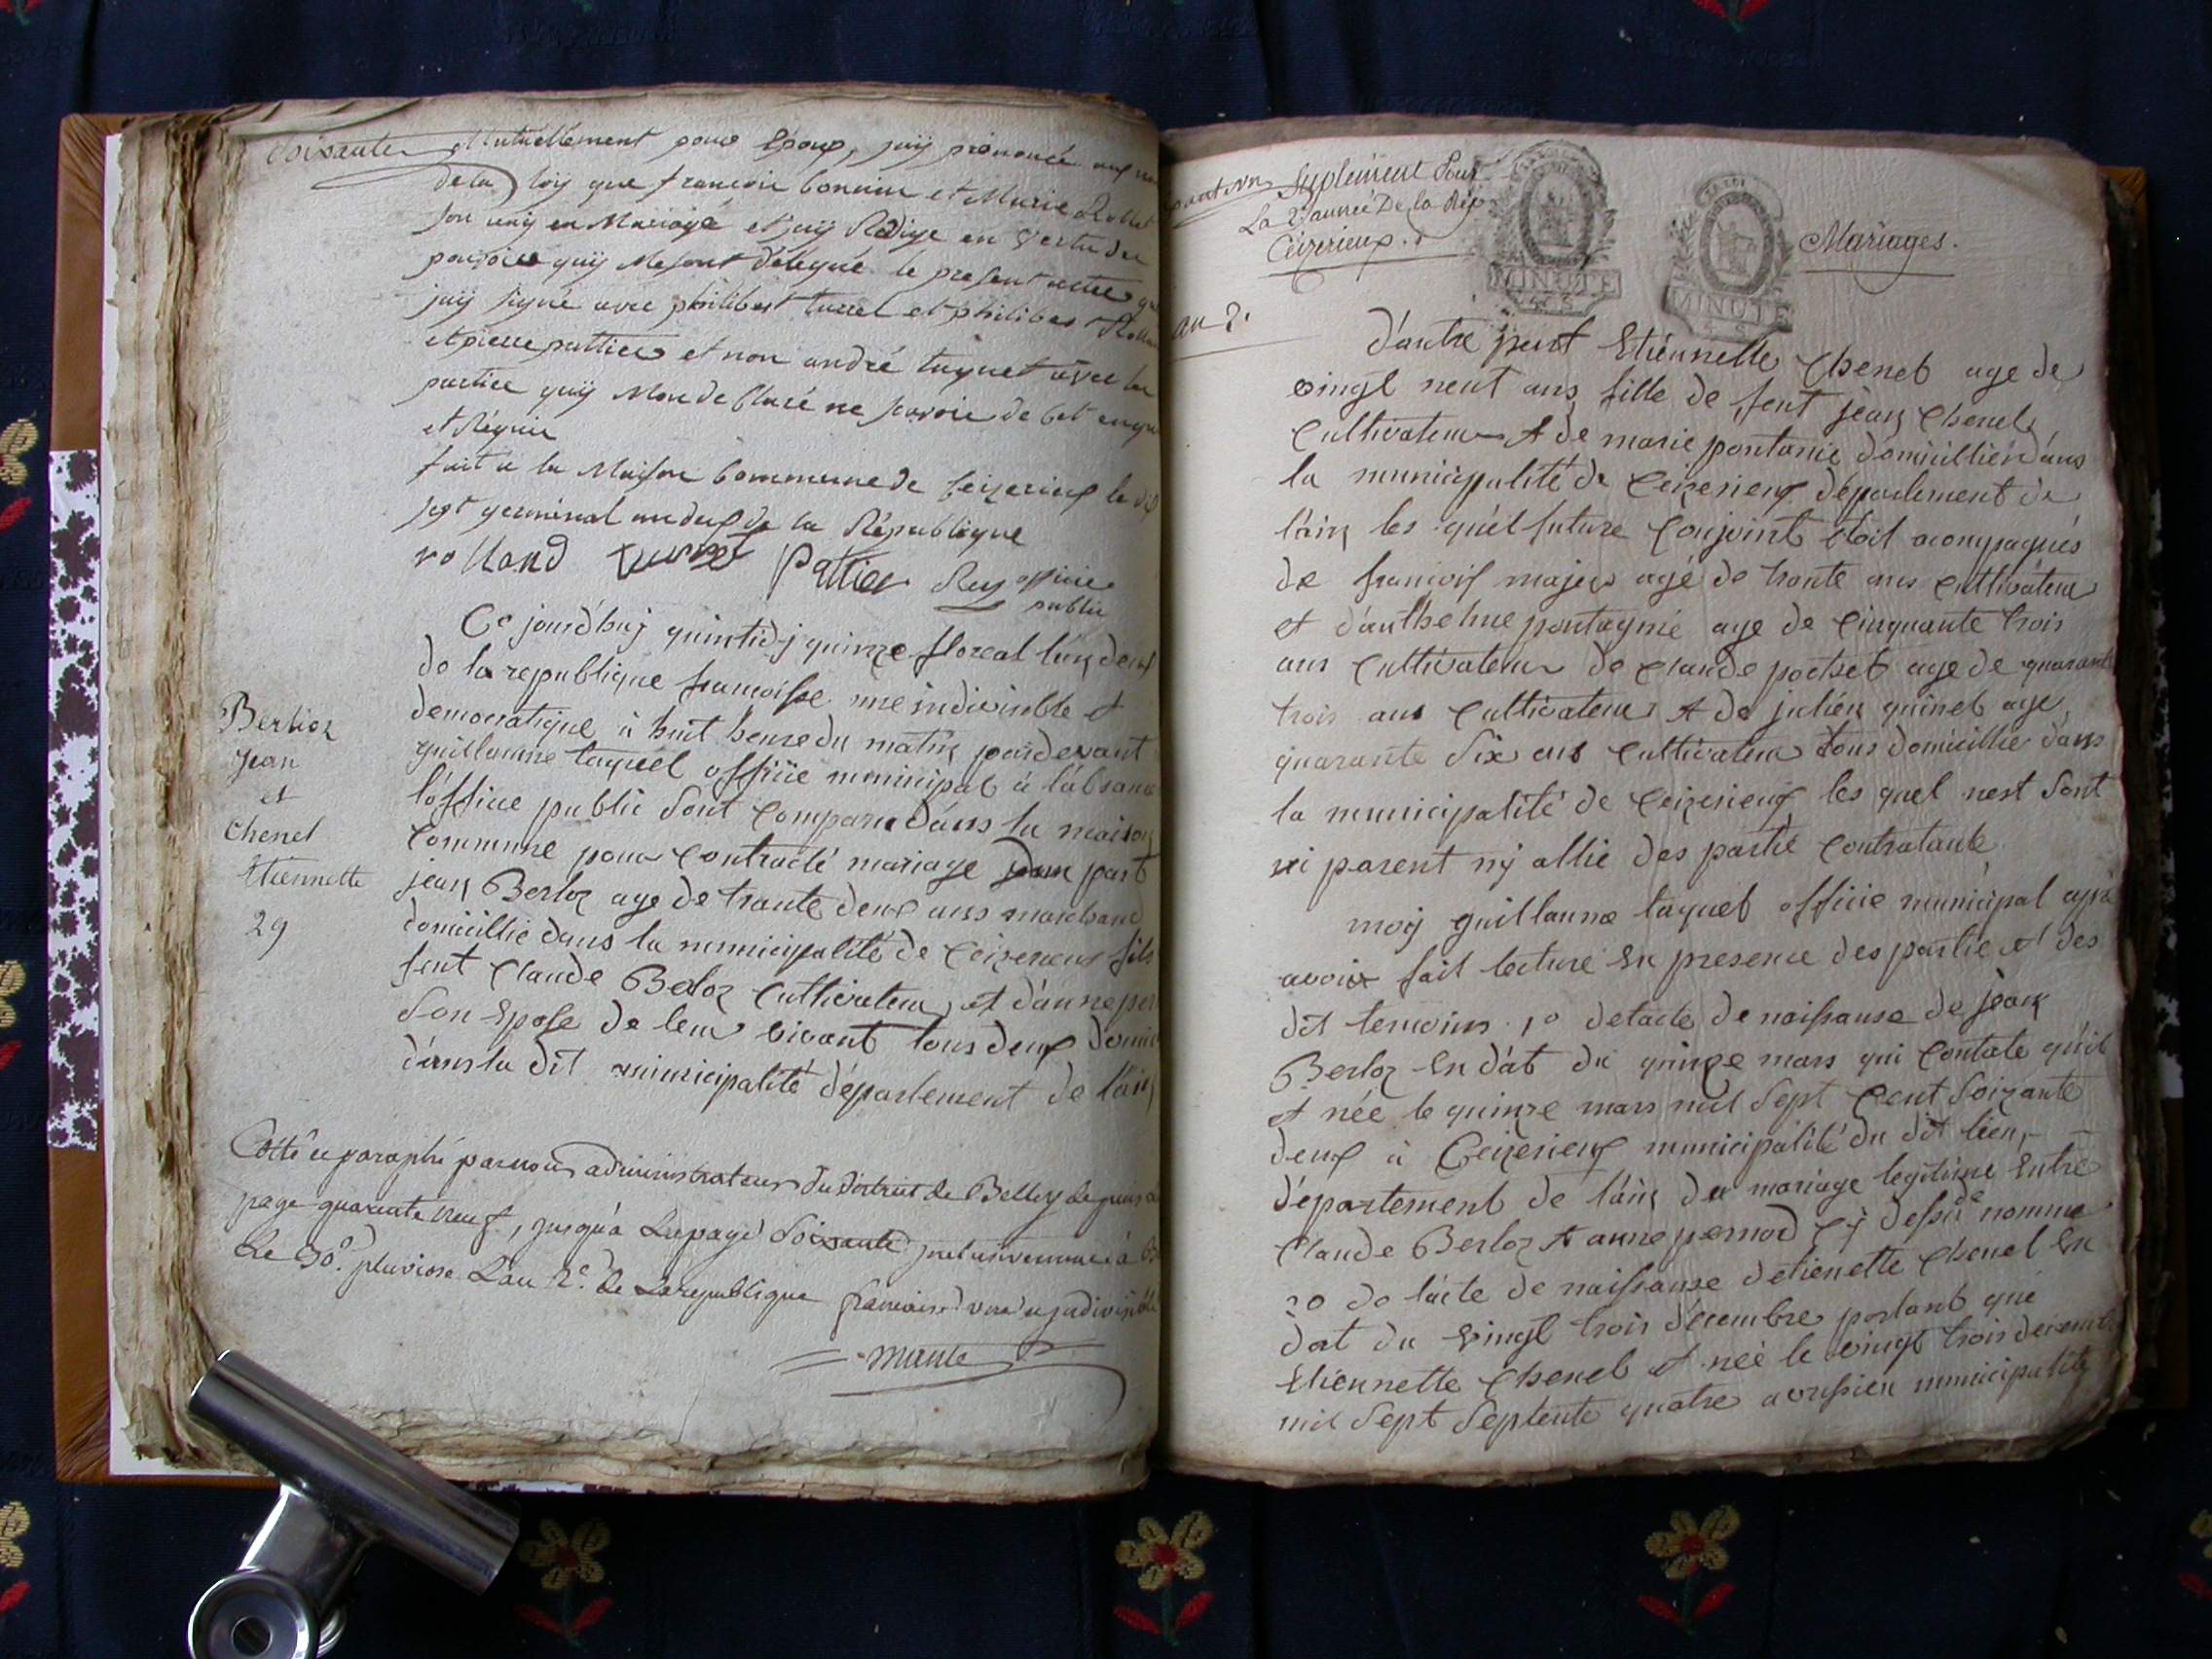 Soixante Mutuellement pour Epoux, jaij prononcée
de la loij que francois bonnin et Marie Rollet
son unij en Mariage et jaij Rédige en Vertu des
pouvoirs quij Mesont délégué le present actes
jaij signé avec philibert turrel et philiber
et pierre pattier et non andré taquet avec les
partiee quij Mon de Claré ne savoir de cet
et Réquis
fait a la Maison Commune de Ceizerieux le
sept germinal an deux de la République
rolland turrel Pattier Rey officier
public
Ce jourd'huij quintidij quinze floreal lan deux
de la republique francoisse une indivisible et
democratique à huit heure du matin pardevant
guillaume taquet officie municipal à l'absance
l'officie public sont comparu dans la maison
commune pour contracté mariage d'une part
jean Berloz age de trante deux ans marchand
domicillié dans la municipalité de Ceizerieux fils
feut Claude Berloz cultivateur et d'anne
son Epose de leur vivant tous deux
dans la dit municipalité département de l'ain
Berlioz
Jean
et
Chenet
Etiennette
29
Cotté et paraphé par nous administrateur du district de Belley depuis
page quarante neuf, jusqu'a La page Soixante inclusivement à
Le 30e. pluviose L'an 2e. de La republique francaise une et indivisible
Mante
Suplément Pour
La 2e année De la Rép
Ceizerieux.
MINUTE
4 S
MINUTE
4 S
Mariages.
an 2.
d'autre part Etiennette Chenet age de
vingt neut ans, fille de feut jean Chenet
Cultivateur et de marie pontanié domicillié dans
la municipalité de Ceizerieux département de
l'ain les quel future Conjoint étoit acompagnés
de francois majer agé de trante ans cultivateur
et d'anthelme pontagnié age de cinquante trois
ans cultivateur de Claude pochet age de quarante
trois ans cultivateur et de julien quinet age
quarante six ans cultivateur tous domicillié dans
la municipalité de Ceizerieux les quel nest sont
ni parent nij allié des partié contratante
moij guillaume taquet officie municipal apré
avoir fait lecture En presence des partie et des
dit temoins. 1o detacte de naissance de jean
Berloz En dat du quinze mars qui contate qu'il
et née le quinze mars mil sept cent soixante
deux à Ceizerieux municipalité du dit lieu,
département de l'ain du mariage legitime entre
Claude Berloz et anne pernod cij dessu de nomme
20 de l'acte de naissance detienette Chenet En
dat du vingt trois décembre portant que
Etiennette Chenet et née le vingt trois decembre
mil sept septente quatre a vrissieu municipalité